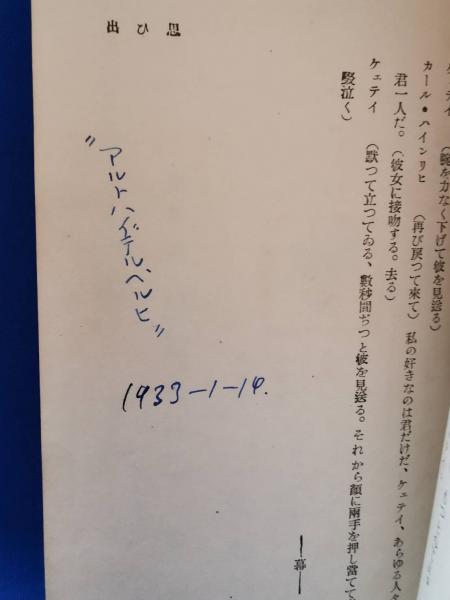 ケェティ　（腕を力なく下げて彼を見送る）
カール・ハインリヒ　（再び戻つて來て）　私の好きなのは君だけだ、ケェティ、あらゆる人
君一人だ。（彼女に接吻する。去る）
ケェティ　（默つて立つてゐる、數秒間ぢつと彼を見送る。それから顏に兩手を押し當てて
歔泣く）
―幕―
思ひ出
"アルトハイデルベルヒ"
1933-1-14.